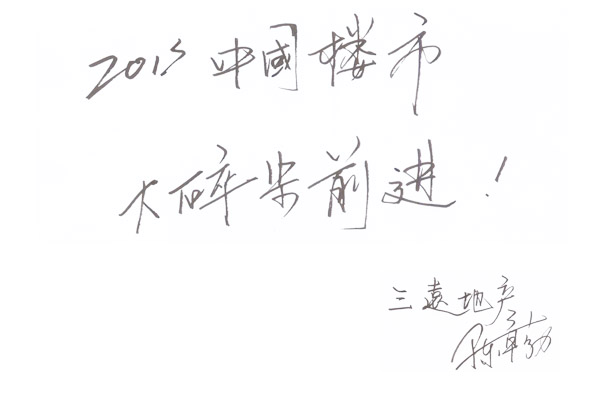 2015中國楼市
大碎步前进！
三遠地产